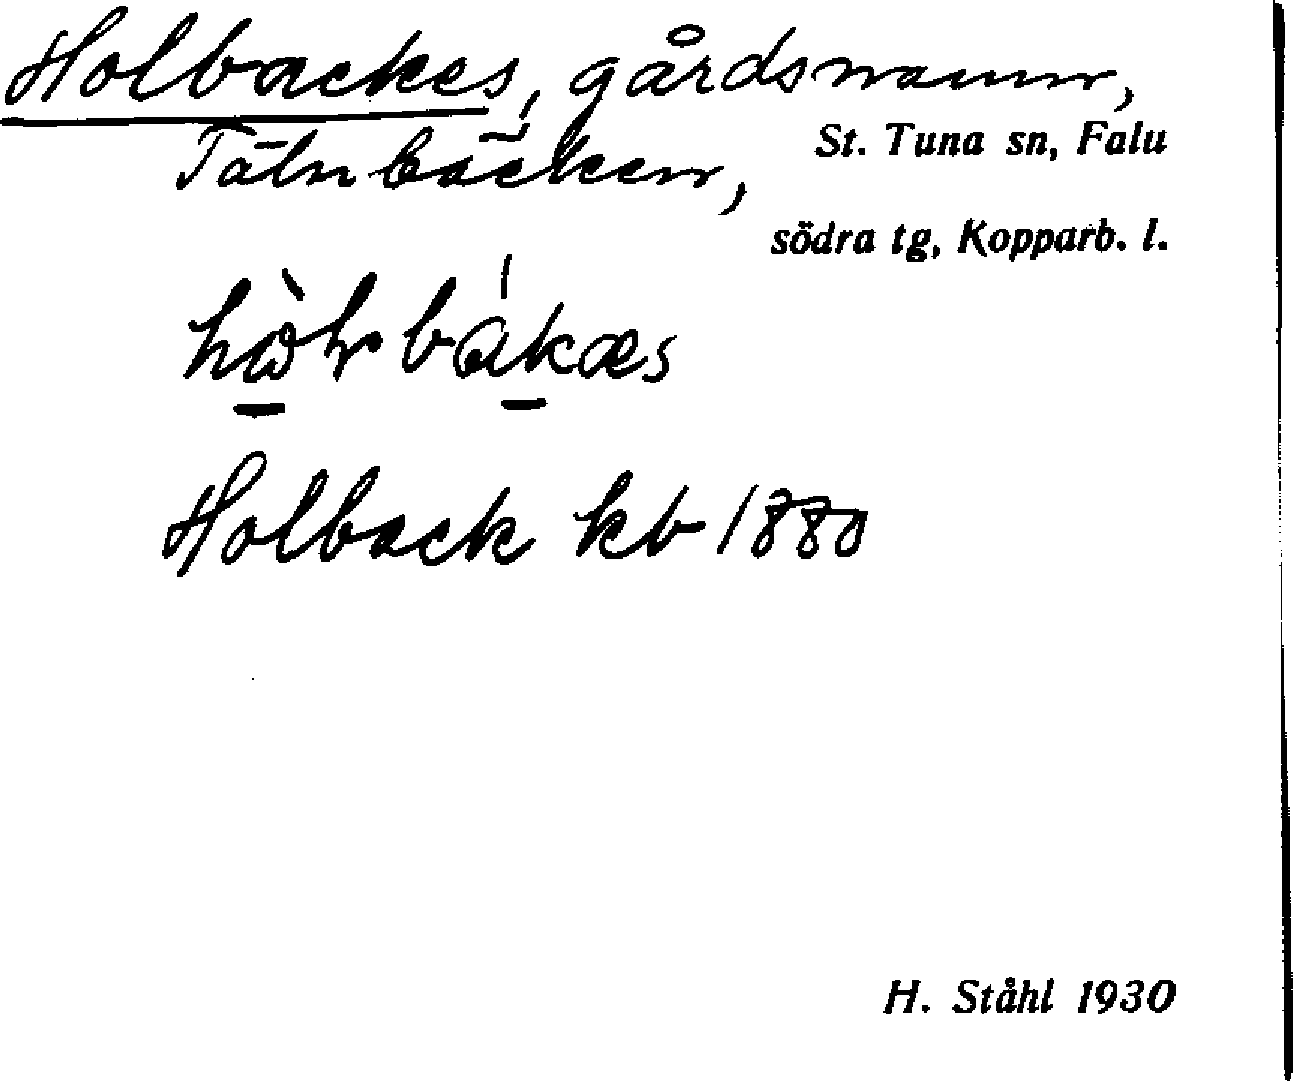 Holbackes, gårdsnamn,
Tälnbäcken,
St. Tuna sn, Falu
södra tg, Kopparb. l.
Holback kb 1880
H. Ståhl 1930